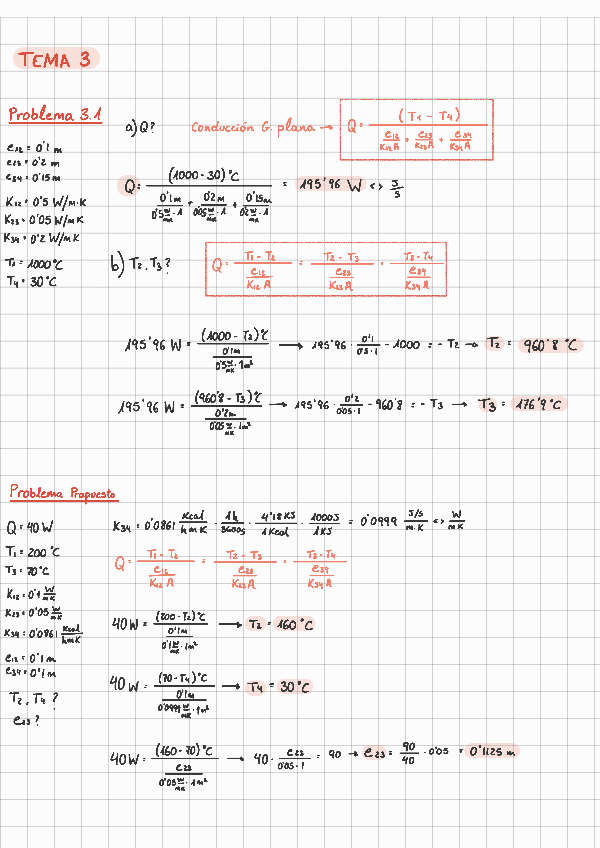 TEMA 3
Problema 3.1
a) Q?
Conducción G. plana → Q = (T1 - T4) / (e12/K12A + e23/K23A + e34/K34A)
e12 = 0'1 m
e23 = 0'2 m
e34 = 0'15m
K12 = 0'5 W/m·K
K23 = 0'05 W/mK
K34 = 0'2 W/mK
T1 = 1000°C
T4 = 30°C
Q = (1000-30)°C / (0'1m/0'5 W/mK·1 + 0'2m/0'05 W/mK·1 + 0'15m/0'2 W/mK·1) = 195'96 W <-> J/s
b) T2, T3?
Q = T1 - T2 / (e12/K12A) = T2 - T3 / (e23/K23A) = T3 - T4 / (e34/K34A)
195'96 W = (1000 - T2)°C / (0'1m/0'5 W/mK·1m²) → 195'96 · 0'1/0'5·1 - 1000 = - T2 → T2 = 960'8 °C
195'96 W = (960'8 - T3)°C / (0'2m/0'05 W/mK·1m²) → 195'96 · 0'2/0'05·1 - 960'8 = - T3 → T3 = 176'9 °C
Problema Propuesto
Q = 40 W
T1 = 200 °C
T3 = 70°C
K12 = 0'1 W/mK
K23 = 0'05 W/mK
K34 = 0'0861 Kcal/hmK
e12 = 0'1 m
e34 = 0'1 m
T2, T4 ?
e23 ?
K34 = 0'0861 Kcal/hmK · 1h/3600s · 4'18KJ/1Kcal · 1000J/1KJ = 0'0999 J/s/m·K <-> W/mK
Q = T1 - T2 / (e12/K12A) = T2 - T3 / (e23/K23A) = T3 - T4 / (e34/K34A)
40W = (200 - T2)°C / (0'1m/0'1 W/mK·1m²) → T2 = 160 °C
40W = (70 - T4)°C / (0'1m/0'0999 W/mK·1m²) → T4 = 30°C
40W = (160 - 70)°C / (e23/0'05 W/mK·1m²) → 40 · e23/0'05·1 = 90 → e23 = 90/40 · 0'05 = 0'1125 m